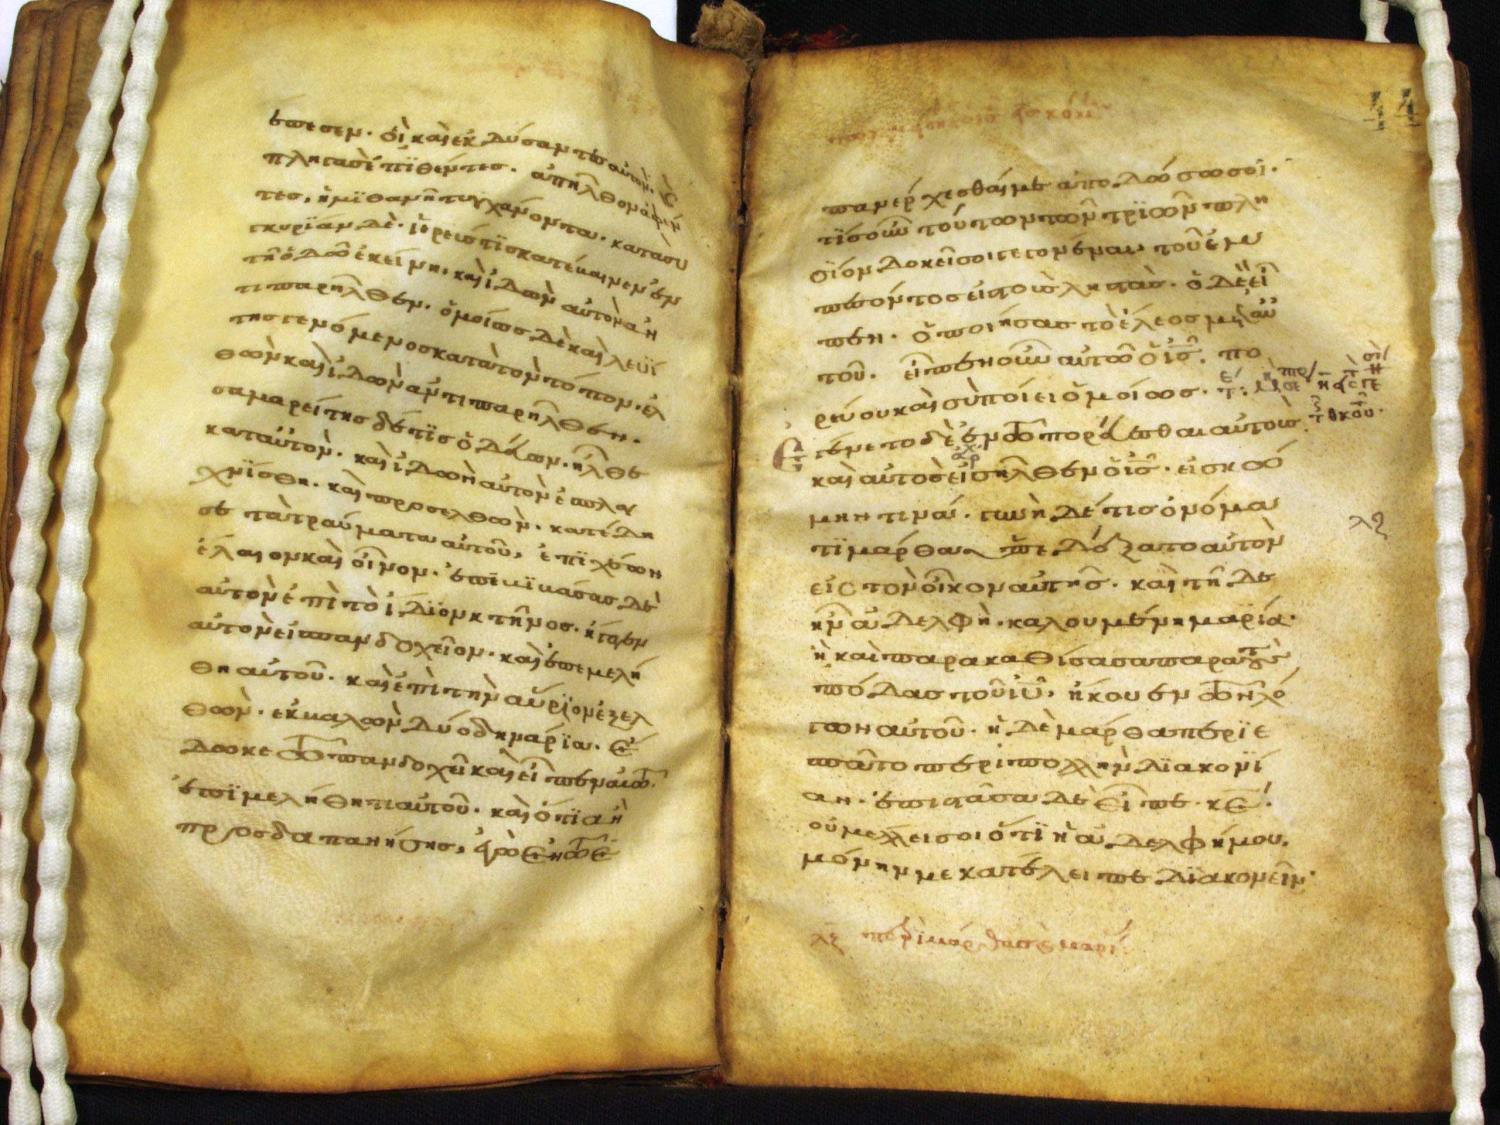 έπεσεν. οἳ καὶ ἐκδύσαντες αὐτὸν. καὶ
πληγὰς ἐπιθέντες. ἀπῆλθον ἀφέν
τες, ἡμϊθανῆ τυγχάνοντα. κατὰ συ
γκυρίαν δὲ. ἱερεύς τϊς κατέβαινεν ἐν
τῆ ὁδῶ ἐκείνη. καὶ ἰδὼν αὐτὸν ἀν
τιπαρῆλθεν. ὁμοίως δὲ καὶ λευΐ
της γενόμενος κατὰ τὸν τόπον. ἐλ
θὼν καὶ ἰδὼν ἀντιπαρῆλθεν.
σαμαρείτης δέ τϊς ὁδεύων. ἦλθε
κατ αὐτὸν. καὶ ἰδὼν αὐτὸν ἐσπλα
χνίσθη. καὶ προσελθὼν. κατέδη
σε τὰ τραύματα αὐτοῦ, ἐπϊχέων
ἔλαιον καὶ οἶνον. ἐπϊβϊβάσας δὲ
αὐτὸν ἐπὶ τὸ ἴδϊον κτῆνος. ἤγαγεν
αὐτὸν εἰς πανδοχεῖον. καὶ ἐπεμελή
θη αὐτοῦ. καὶ ἐπὶ τὴν αὔρϊον ἐξελ
θὼν. ἐκβαλὼν δύο δηνάρϊα. ἔ
δωκε τῶ πανδοχεῖ καὶ εἶπεν αὐτῶ.
ἐπϊμελήθητι αὐτοῦ. καὶ ὅτϊ ἂν
προσδαπανήσης, ἐγὼ ἐν τῶ ἐ
44
πανέρχεσθαί με ἀποδώσω σοι.
τίς οὖν τούτων τῶν τρϊῶν πλη
σϊον δοκεῖ σοι γεγονέναι τοῦ ἐμ
πεσόντος εἰς τοὺς ληστάς. ὁ δὲ εἶ
πεν. ὁ ποιήσας τὸ ἔλεος μετ αὐ
τοῦ. εἶπεν οὖν αὐτῶ ὁ ἰς. πο
ρεύου καὶ σὺ ποίει ὁμοίως.
Εγένετο δὲ ἐν τῶ πορεύεσθαι αὐτοὺς.
καὶ αὐτὸς εἰσῆλθεν ὁ ἰς. εἰς κώ
μην τινά. γυνὴ δέ τις ὀνόμα
τϊ μάρθα ὑπεδέξατο αὐτὸν
εἰς τὸν οἶκον αὐτῆς. καὶ τῆδε
ἦν ἀδελφὴ. καλουμένη μαρία.
ἣ καὶ παρακαθίσασα παρὰ τοὺς
πόδας τοῦ ἰυ. ἤκουεν τῶν λό
γων αὐτοῦ. ἡ δὲ μάρθα περϊε
σπᾶτο περὶ πολλὴν δϊακονί
αν. ἐπιστᾶσα δὲ εἶπε. κε.
οὐ μέλλει σοι ὅτϊ ἡ ἀδελφή μου.
μόνην με κατέλειπε δϊακονεῖν.
λζ
λζ περὶ μάρθας καὶ μαρί